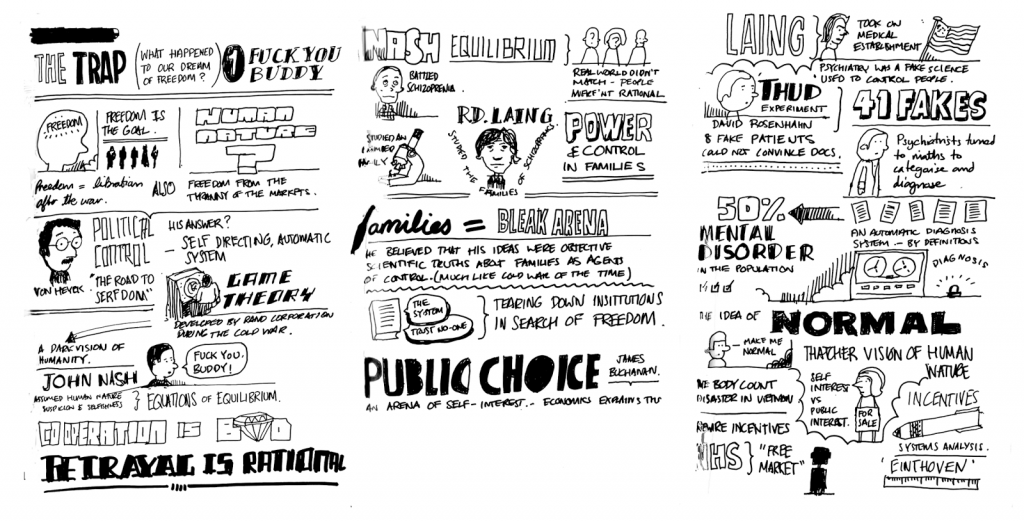 THE TRAP
(WHAT HAPPENED
TO OUR DREAM
OF FREEDOM?)
1 FUCK YOU
BUDDY
FREEDOM
FREEDOM IS
THE GOAL.
HUMAN
NATURE
Freedom = libratian
after the war.
ALSO
FREEDOM FROM THE
TYRANNY OF THE MARKETS.
POLITICAL
CONTROL
"THE ROAD TO
SERFDOM"
VON HEYEK
HIS ANSWER?
- SELF DIRECTING, AUTOMATIC
SYSTEM
GAME
THEORY
DEVELOPED BY RAND CORPORATION
DURING THE COLD WAR.
A DARK VISION OF
HUMANITY.
JOHN NASH
FUCK YOU.
BUDDY!
ASSUMED HUMAN NATURE
SUSPICION & SELFISHNESS
} EQUATIONS OF EQUILIBRIUM.
COOPERATION IS
BAD
BETRAYAL IS RATIONAL
NASH EQUILIBRIUM }
BATTLED
SCHIZOPRENIA.
REAL WORLD DIDN'T
MATCH - PEOPLE
WEREN'T RATIONAL
R.D. LAING
STUDIED AN
FAMILY
STUDIED THE
FAMILIES
OF
SCHIZOPHRENICS.
POWER
& CONTROL
IN FAMILIES
families = BLEAK ARENA
HE BELIEVED THAT HIS IDEAS WERE OBJECTIVE
SCIENTIFIC TRUTHS ABOUT FAMILIES AS AGENTS
OF CONTROL. (MUCH LIKE COLD WAR OF THE TIME)
THE
SYSTEM
TRUST NO-ONE
} TEARING DOWN INSTITUTIONS
IN SEARCH OF FREEDOM.
PUBLIC CHOICE
JAMES
BUCHANAN.
AN ARENA OF SELF-INTEREST. - ECONOMICS EXPLAINS THIS
LAING }
TOOK ON
MEDICAL
ESTABLISHMENT
PSYCHIATRY WAS A FAKE SCIENCE
USED TO CONTROL PEOPLE.
THUD
EXPERIMENT
DAVID ROSENHAHN
8 FAKE PATIENTS
COULD NOT CONVINCE DOCS.
41 FAKES
Psychiatrists turned
to maths to
categorise and
diagnose
50%
MENTAL
DISORDER
IN THE POPULATION
AN AUTOMATIC DIAGNOSIS
SYSTEM - BY DEFINITIONS
DIAGNOSIS
THE IDEA OF NORMAL
- MAKE ME
NORMAL
THATCHER VISION OF HUMAN
NATURE
BODY COUNT
DISASTER IN VIETNAM
SELF
INTEREST
VS
PUBLIC
INTEREST.
FOR
SALE
INCENTIVES
INCENTIVES
SYSTEMS ANALYSIS.
NHS } "FREE
MARKET"
'EINTHOVEN'